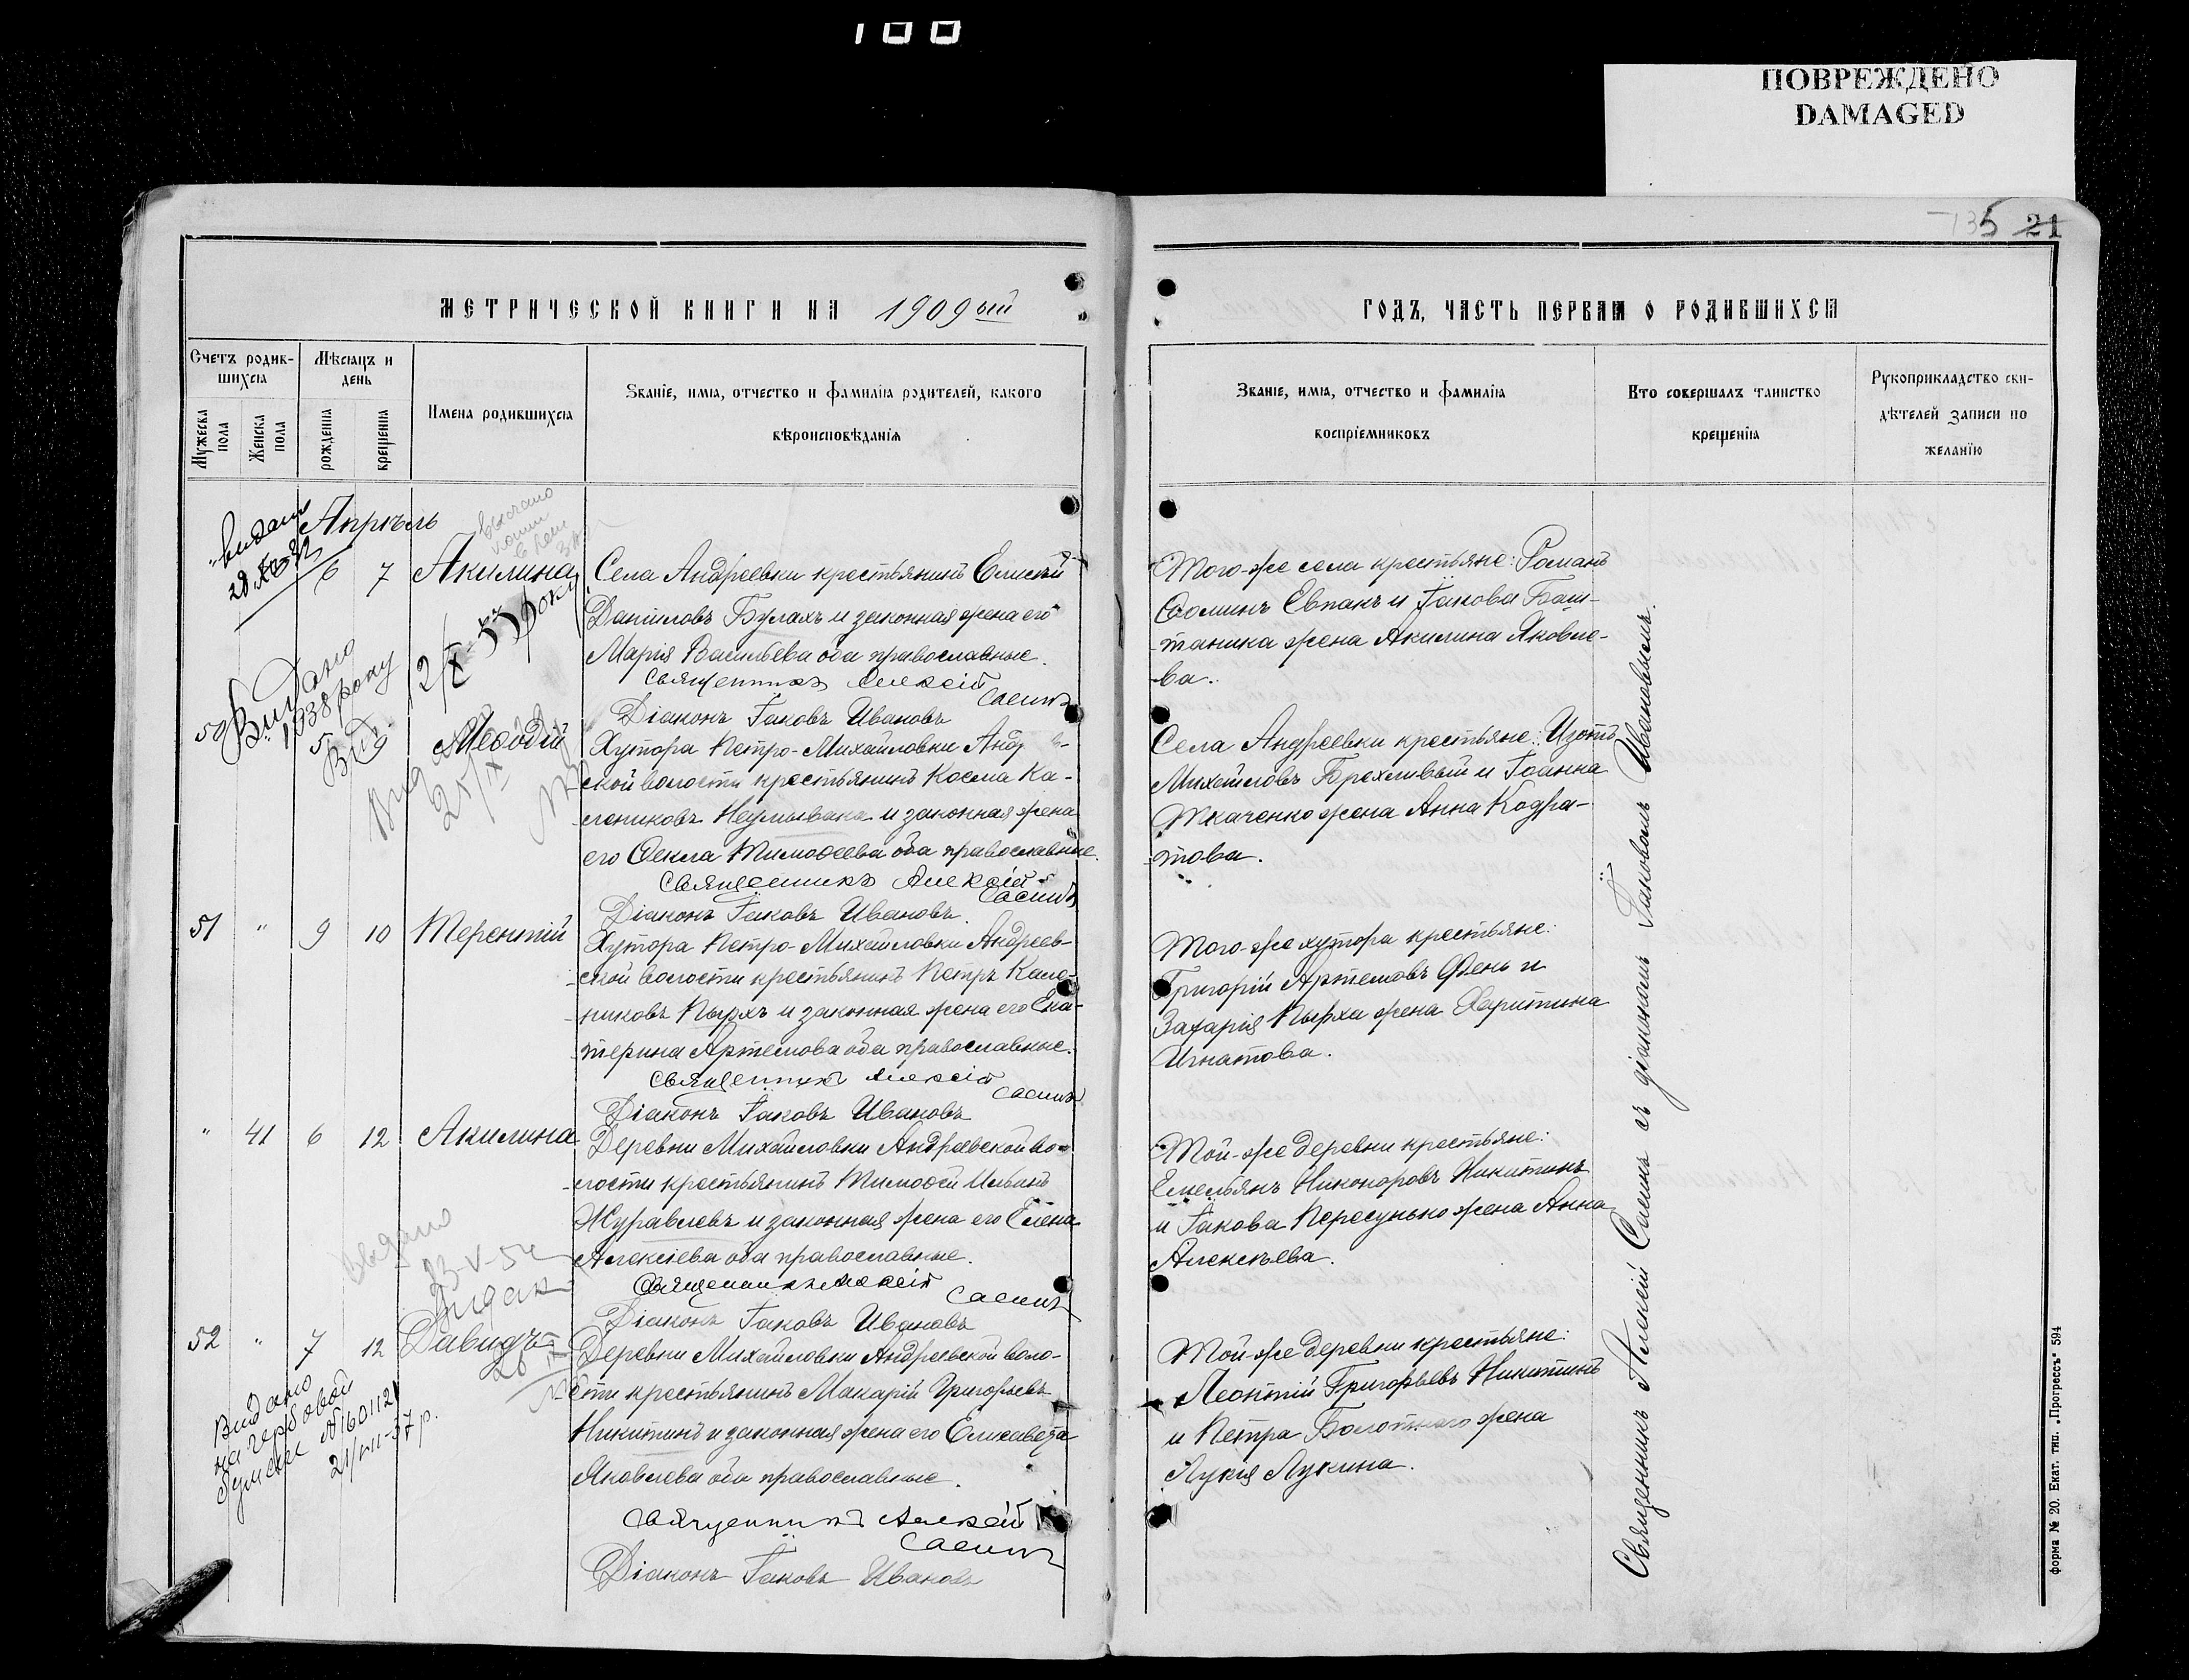 100
ПОВРЕЖДЕНО
DAMAGED
5 21
МЕТРИЧЕСКОЙ КНИГИ НА 1909ый
ГОДЪ, ЧАСТЬ ПЕРВАЯ О РОДИВШИХСЯ
Счетъ родив-
шихся
Мѣсяцъ и
день
Мужеска
пола
Женска
пола
рожденія
крещенія
Имена родившихся
Званіе, имя, отчество и фамилія родителей, какого
вѣроисповѣданія
Званіе, имя, отчество и фамилія
воспріемниковъ
Кто совершалъ таинство
крещенія
Рукоприкладство сви-
дѣтелей записи по
желанію
Апрѣль
6 7 Акилина
Села Андреевки крестьянинъ Елисѣй
Даниловъ Булахъ и законная жена его
Марія Васильева оба православные.
Священникъ Алексій
Саенкъ
Діаконъ Іаковъ Ивановъ
Того-же села крестьяне: Романъ
Ѳоминъ Евпакъ и Іакова Баш-
таника жена Акилина Яковле-
ва.
50 Видано
1938 року
5 9 Меѳодій
Хутора Петро-Михайловки Андр
ской волости крестьянинъ Косма Ка-
лениковъ Неумывака и законная жена
его Ѳекла Тимоѳеева оба православные.
Священникъ Алексій
Саенкъ
Діаконъ Іаковъ Ивановъ.
Села Андреевки крестьяне: Изотъ
Михайловъ Брехливый и Іоанна
Ткаченко жена Анна Кодра-
това.
51 " 9 10 Терентій
Хутора Петро-Михайловки Андреев-
ской волости крестьянинъ Петръ Кале-
никовъ Пырхъ и законная жена его Ека-
терина Артемова оба православные.
Священникъ Алексій
Саенкъ
Діаконъ Іаковъ Ивановъ
Того-же хутора крестьяне:
Григорій Артемовъ Фень и
Захарія Пырха жена Харитина
Игнатова.
" 41 6 12 Акилина
Деревни Михайловки Андреевской во-
лости крестьянинъ Тимоѳей Ильинъ
Журавлевъ и законная жена его Елена
Алексіева оба православные.
Священникъ Алексій
Саенкъ
Діаконъ Іаковъ Ивановъ
Той-же деревни крестьяне:
Емельянъ Никоноровъ Никитинъ
и Іакова Пересунько жена Анна
Алексѣева.
Выдано
23-V-54
52 " 7 12 Давидъ
Деревни Михайловки Андреевской воло-
сти крестьянинъ Макарій Григорьевъ
Никитинъ и законная жена его Елисавета
Яковлева оба православные.
Священникъ Алексѣй
Саенкъ
Діаконъ Іаковъ Ивановъ
Той-же деревни крестьяне:
Леонтій Григорьевъ Никитинъ
и Петра Болотнаго жена
Лукія Лукина.
Видано
на гербовой
21/VII-37 р.
Священникъ Алексій Саенкъ съ діакономъ Іаковомъ Ивановымъ.
Форма № 20. Екат. тип. „Прогрессъ" 594